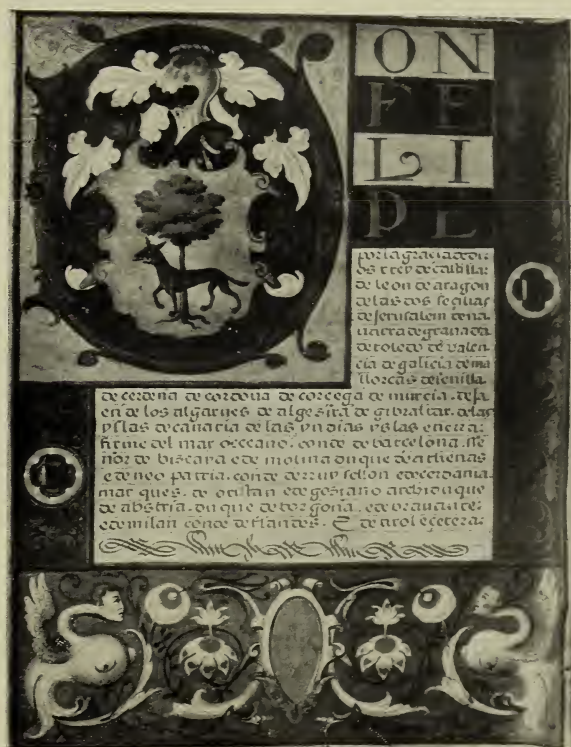 DON
FE
LI
PE
por la graciadedi
os rrey de castilla:
de leon de aragon
de las dos secilias
de jerusalem de na
uarra de granada
de toledo de valen
cia de galicia de ma
llorcas de seuilla.
de cerdena de cordoua de corcega de murcia. de ja
en de los algarues de algesira de gibraltar. de las
yslas de canaria de las yndias yslas e tierra.
firme del mar occeano. conde de barcelona. Se
ñor de biscaya e de molina duque de athenas
e de neo patria. conde de rruysellon e de cerdania.
marques. de oristan e de gosiano archiduque
de abstria. duque de borgoña. e de brauante:
e de milan conde de flandes. E de tirol e cetera: